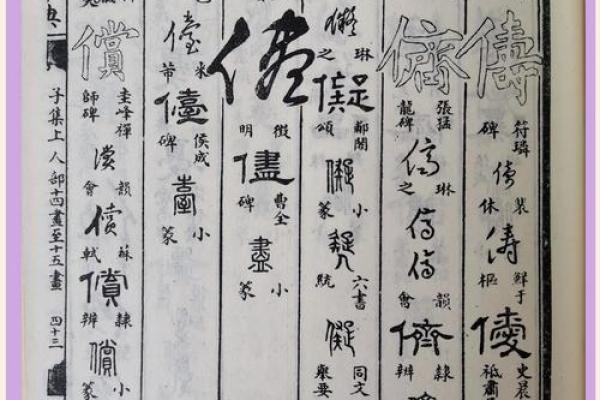 儔 符璘碑 儔 裴休 儔 鮮于樞 史晨 祗肅
儕 張猛龍碑 儕 琳之 儕 儕 韻會 儕 隸辨
儗 琳之 儗 郙閣頌 儗 小篆 六書統 儗 同文舉要
儘 徵明 儘 曹全碑 盡 小篆
儓 米芾 儓 侯成碑 臺 小篆
償 圭峰禪師碑 償 韻會 償 蘇軾 償 隸辨 償 小篆
子集上 人部十四畫至十五畫 四十三